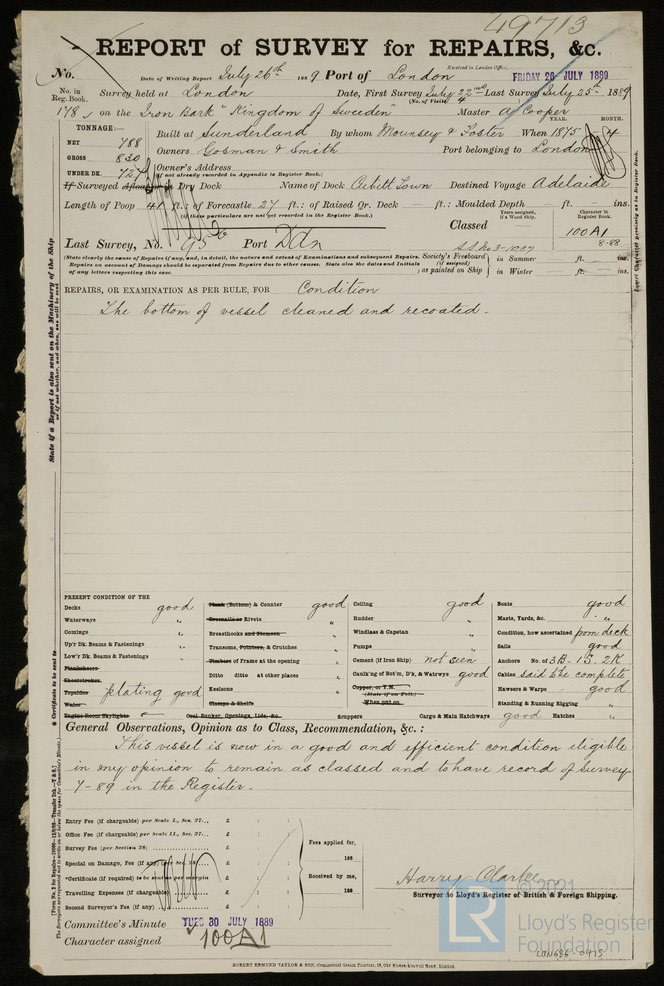 49713
REPORT of SURVEY for REPAIRS, &c.
Received in London Office,
No. Date of Writing Report July 26th 1889 Port of London FRIDAY 26 JULY 1889
No. in Reg. Book. Survey held at London Date, First Survey July 22nd Last Survey July 25th 1889
(No. of Visits) 4
178 on the Iron Bark "Kingdom of Sweden" Master A Cooper
TONNAGE:— YEAR. MONTH.
NET 788 Built at Sunderland By whom Mounsey & Foster When 1875 4
GROSS 830 Owners Cosman & Smith Port belonging to London
UNDER DK. 727 Owner's Address
(if not already recorded in Appendix to Register Book.)
If Surveyed Afloat or in Dry Dock Name of Dock Cubitt Town Destined Voyage Adelaide
Length of Poop 41 ft.: of Forecastle 27 ft.: of Raised Qr. Deck — ft.: Moulded Depth — ft. — ins.
(if these particulars are not yet recorded in the Register Book.)
Years assigned, if a Wood Ship. Character in Register Book.
Classed 100A1
8-88
Last Survey, No. 95 Port
(State clearly the cause of Repairs if any, and, in detail, the nature and extent of Examinations and subsequent Repairs. Repairs on account of Damage should be separated from Repairs due to other causes. State also the dates and Initials of any letters respecting this case.
Society's Freeboard (if assigned) as painted on Ship in Summer ft. — ins.
in Winter ft. — ins.
REPAIRS, OR EXAMINATION AS PER RULE, FOR Condition
The bottom of vessel cleaned and recoated.
State if a Report is also sent on the Machinery of the Ship
PRESENT CONDITION OF THE
Decks good
Waterways "
Comings "
Up'r Dk. Beams & Fastenings "
Low'r Dk. Beams & Fastenings "
Planksheers
Sheerstrakes
Topsides plating good
Wales
Engine Room Skylights
Plank (Bottom) & Counter good
Treenails or Rivets "
Breasthooks and Stemson "
Transoms, Pointers, & Crutches "
Timbers of Frame at the opening "
Ditto ditto at other places "
Keelsons "
Clamps & Shelfs
Coal Bunker, Openings, Lids, &c.
Scuppers
Ceiling good
Rudder "
Windlass & Capstan "
Pumps "
Cement (if Iron Ship) not seen
Caulk'ng of Bot'm, D'k, & Watrwys good
Copper, or Y.M.
(State if on Felt.)
When put on
Cargo & Main Hatchways good
Boats good
Masts, Yards, &c. "
Condition, how ascertained from deck
Sails good
Anchors No. of 3B. 1S. 2K
Cables said to be complete
Hawsers & Warps good
Standing & Running Rigging "
Hatches "
General Observations, Opinion as to Class, Recommendation, &c.:
This vessel is now in a good and efficient condition eligible
in my opinion to remain as classed and to have record of Survey
7-89 in the Register.
Entry Fee (if chargeable) per Scale I., Sec. 27... £ : :
Office Fee (if chargeable) per Scale II., Sec. 27... £ : :
Survey Fee (per Section 28) £ : :
Special on Damage, Fee (if any) £ : :
*Certificate (if required) to be sent as per margin £ : :
Travelling Expenses (if chargeable) £ : :
Second Surveyor's Fee (if any) £ : :
Fees applied for,
188
Received by me,
188
Harry Clarke
Surveyor to Lloyd's Register of British & Foreign Shipping.
Committee's Minute TUES 30 JULY 1889
Character assigned 100A1
© 2021
LR
Lloyd's Register
Foundation
LRN686-0415
ROBERT EDMUND TAYLOR & SON, Commercial Steam Printers, 19, Old Street, Goswell Road, London.